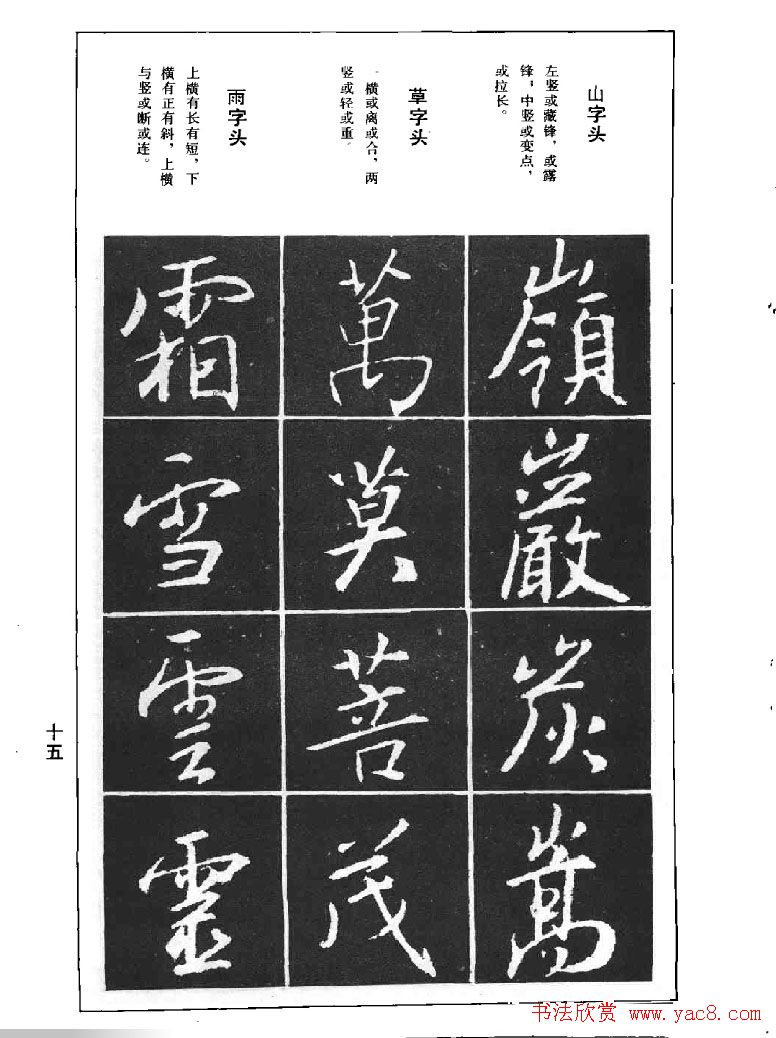 山字头
左竖或藏锋，或露
锋，中竖或变点，
或拉长。
草字头
一横或离或合，两
竖或轻或重。
雨字头
上横有长有短，下
横有正有斜，上横
与竖或断或连。
嶺
巖
炭
嵩
萬
莫
菩
茂
霜
雪
雲
靈
十五
书法欣赏 www.yac8.com